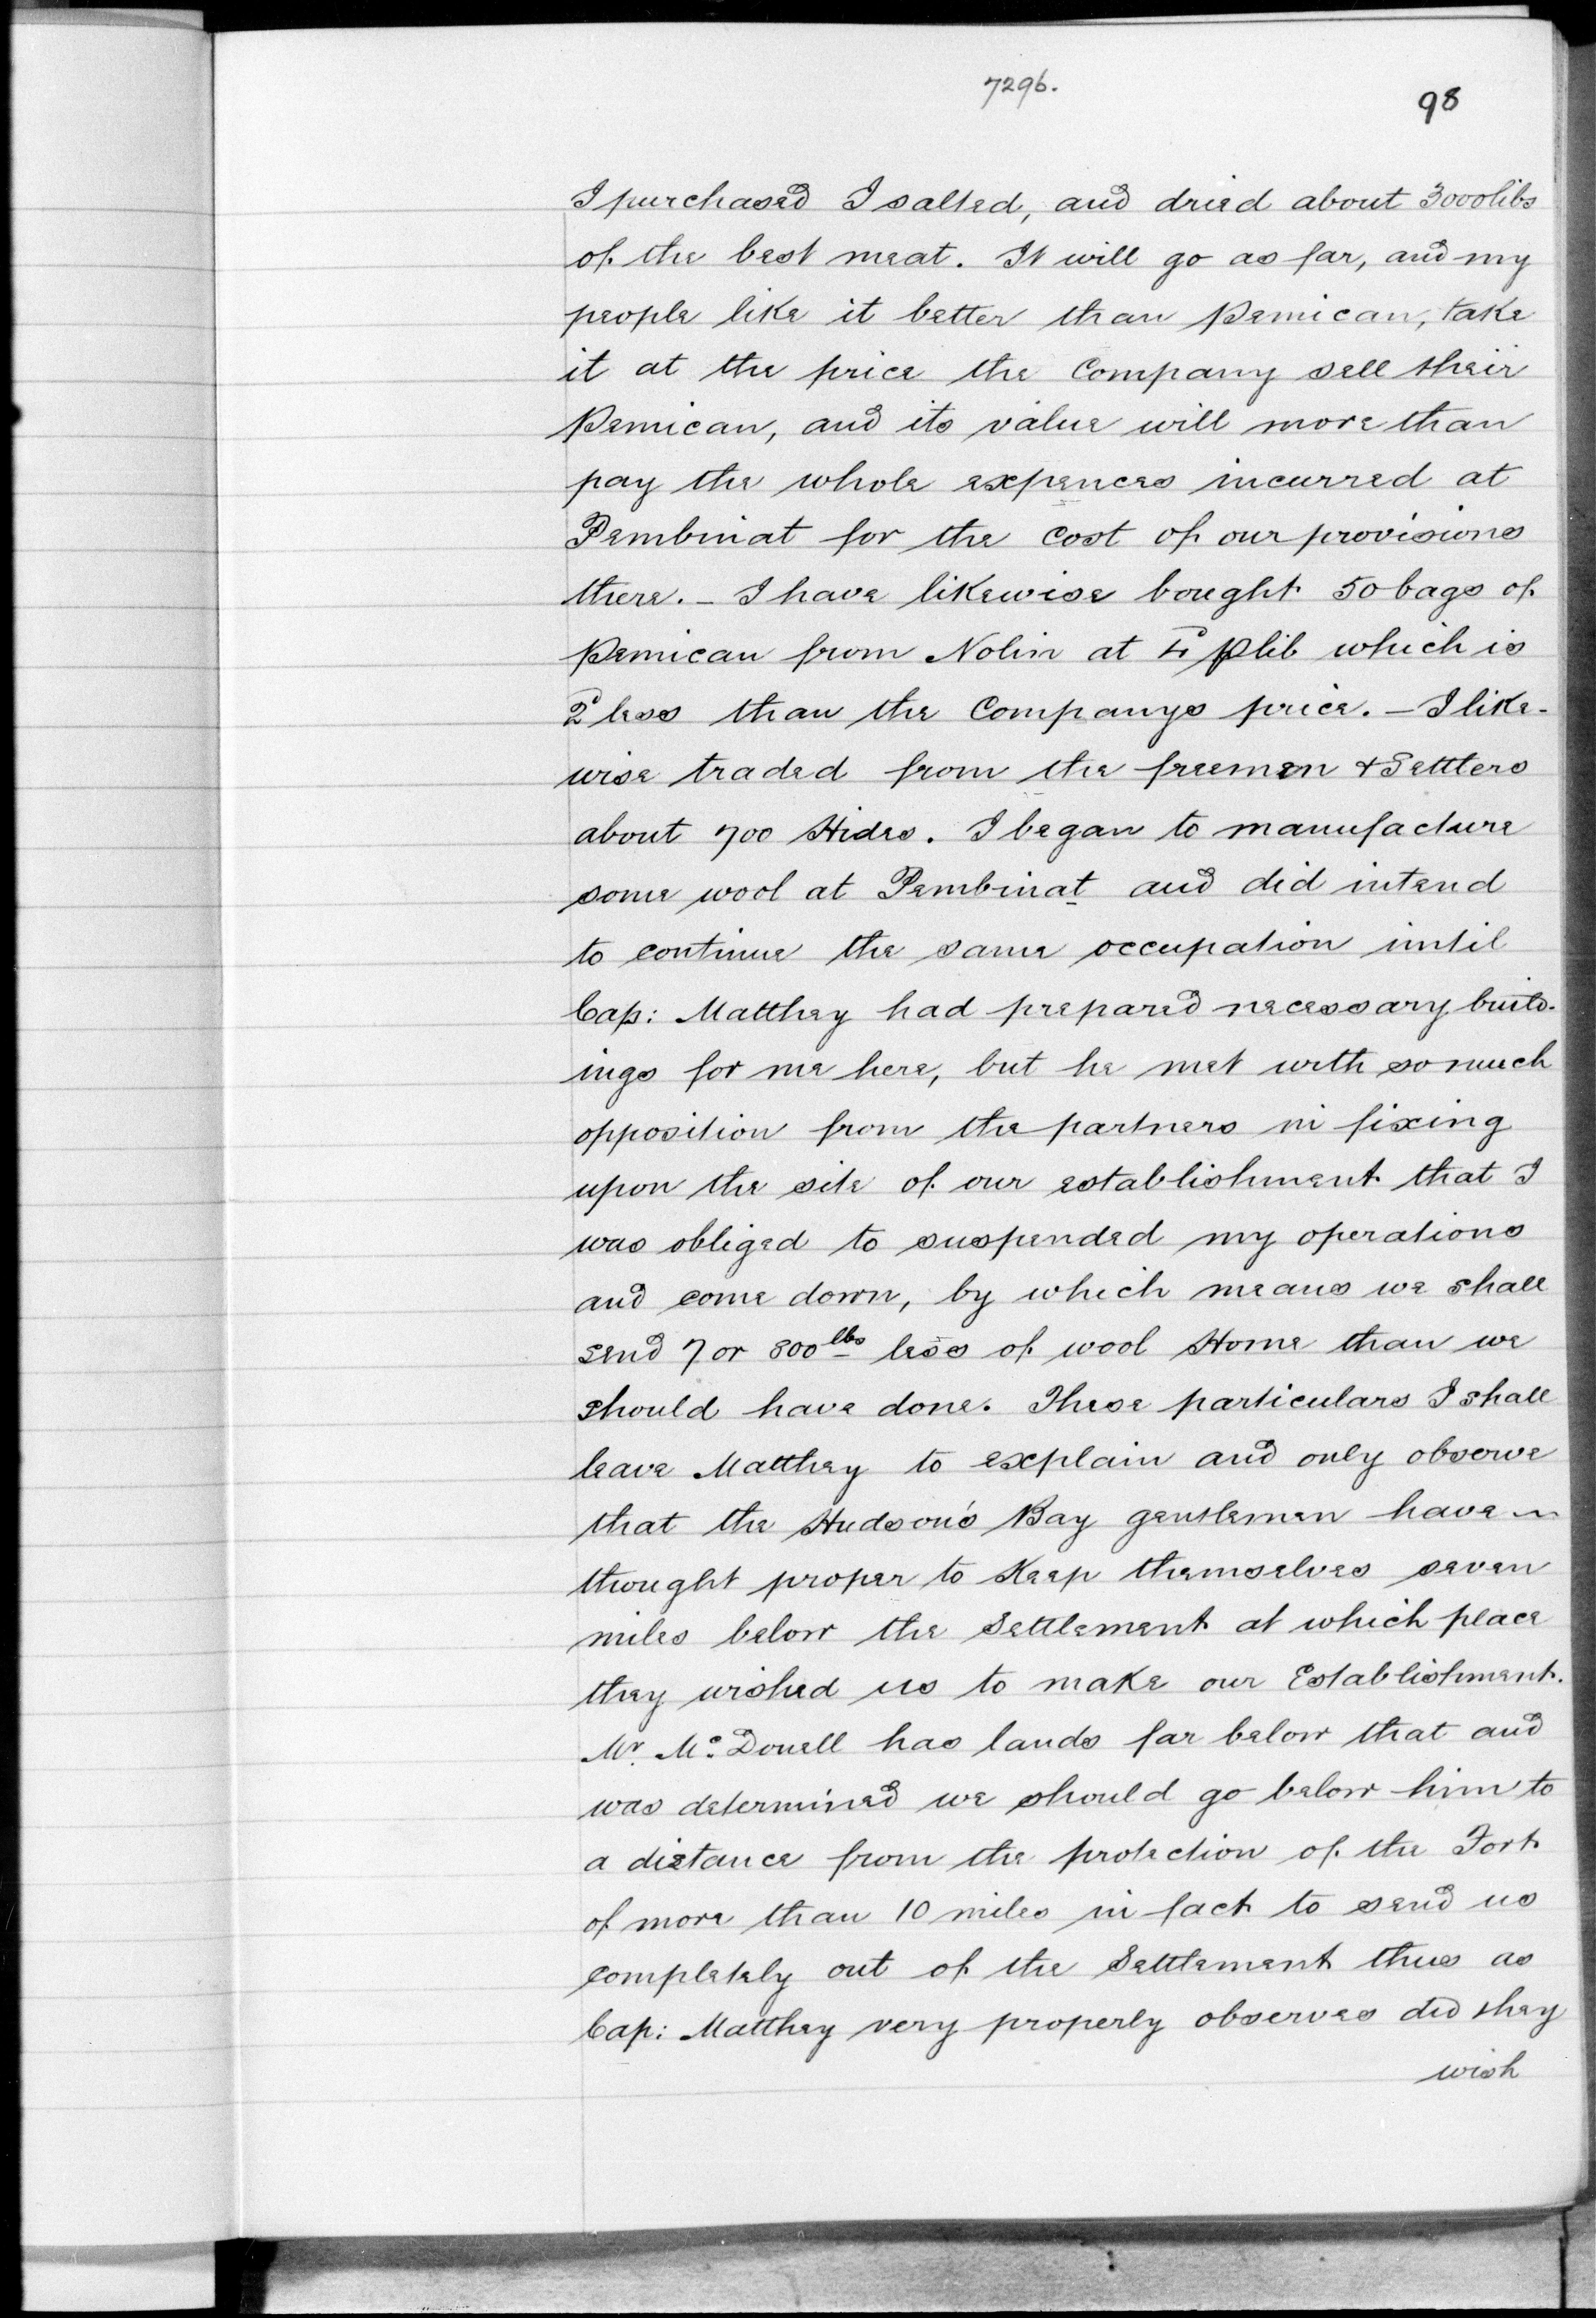 7296.
98
I purchased I salted, and dried about 3000 libs
of the best meat. It will go as far, and my
people like it better than Pemican, take
it at the price the Company sell their
Pemican, and its value will more than
pay the whole expences incurred at
Pembinat for the cost of our provisions
there. - I have likewise bought 50 bags of
Pemican from Nolin at 4d p lib which is
2d less than the Companys price. - I like-
wise traded from the freemen & Settlers
about 700 Hides. I began to manufacture
some wool at Pembinat and did intend
to continue the same occupation until
Cap: Matthey had prepared necessary build-
ings for me here, but he met with so much
opposition from the partners in fixing
upon the site of our establishment that I
was obliged to suspended my operations
and come down, by which means we shall
send 7 or 800 lbs less of wool Home than we
should have done. These particulars I shall
leave Matthey to explain and only observe
that the Hudson's Bay gentlemen have ~
thought proper to Keep themselves seven
miles below the Settlement at which place
they wished us to make our Establishment.
Mr. Mc. Donell has lands far below that and
was determined we should go below him to
a distance from the protection of the Fort
of more than 10 miles in fact to send us
completely out of the Settlement thus as
Cap: Matthey very properly observes did they
wish